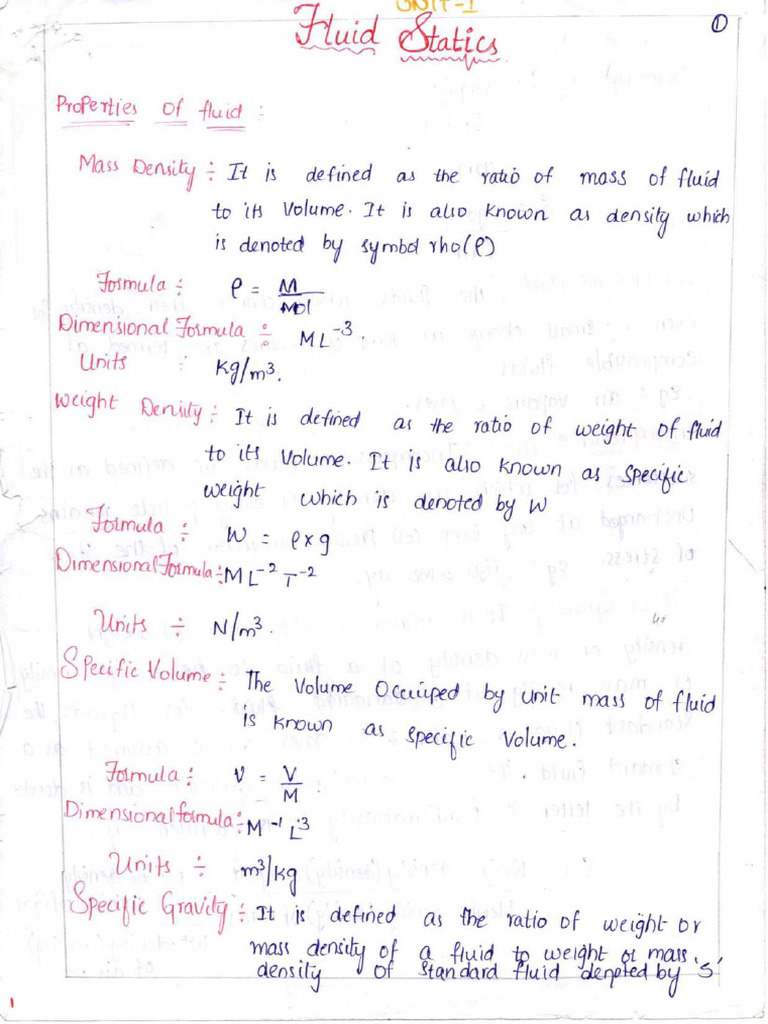 UNIT-I
Fluid Statics
1
Properties of fluid :-
Mass Density ÷ It is defined as the ratio of mass of fluid
to its Volume. It is also known as density which
is denoted by symbol rho(ρ)
Formula ÷ ρ = M/Vol
Dimensional Formula ÷ ML⁻³.
Units : Kg/m³.
Weight Density ÷ It is defined as the ratio of weight of fluid
to its Volume. It is also known as Specific
weight which is denoted by W
Formula ÷ W = ρ×g
Dimensional Formula ÷ ML⁻² T⁻²
Units ÷ N/m³.
Specific Volume ÷ The Volume Occuiped by unit mass of fluid
is known as specific Volume.
Formula ÷ v = V/M
Dimensional formula ÷ M⁻¹ L³
Units ÷ m³/kg
Specific Gravity ÷ It is defined as the ratio of weight or
mass density of a fluid to weight or mass
density of standard fluid denoted by 'S'
1